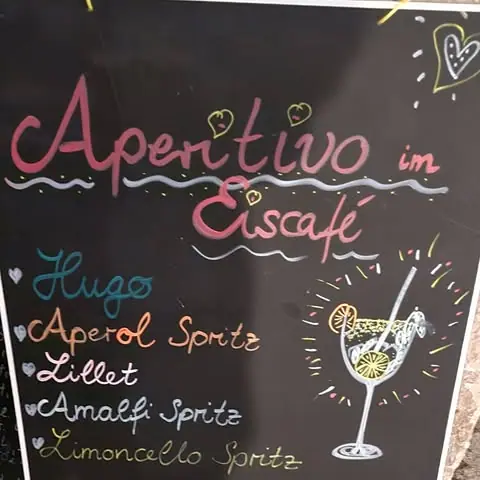 Aperitivo im
Eiscafé
Hugo
Aperol Spritz
Lillet
Amalfi Spritz
Limoncello Spritz